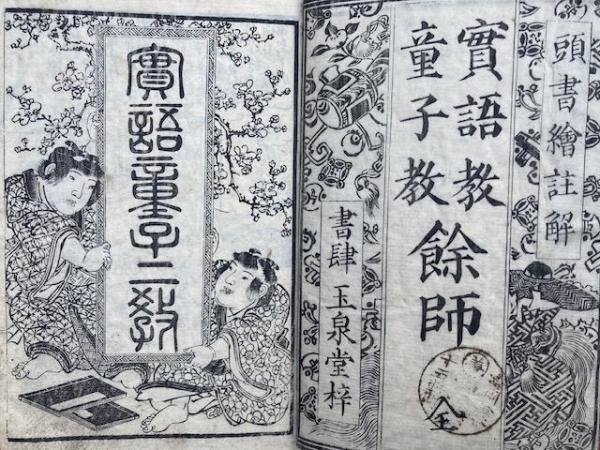 頭書繪註解
實語教
童子教
餘師
全
書肆 玉泉堂梓
實語童子二教